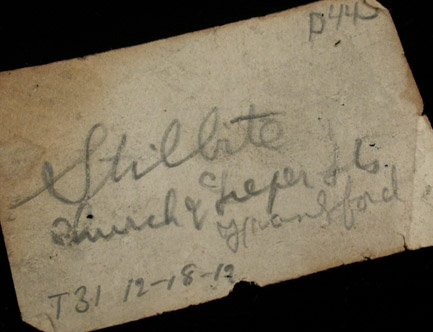 P445
Stilbite
Church & Leiper Sts
Frankford
T31 12-18-12